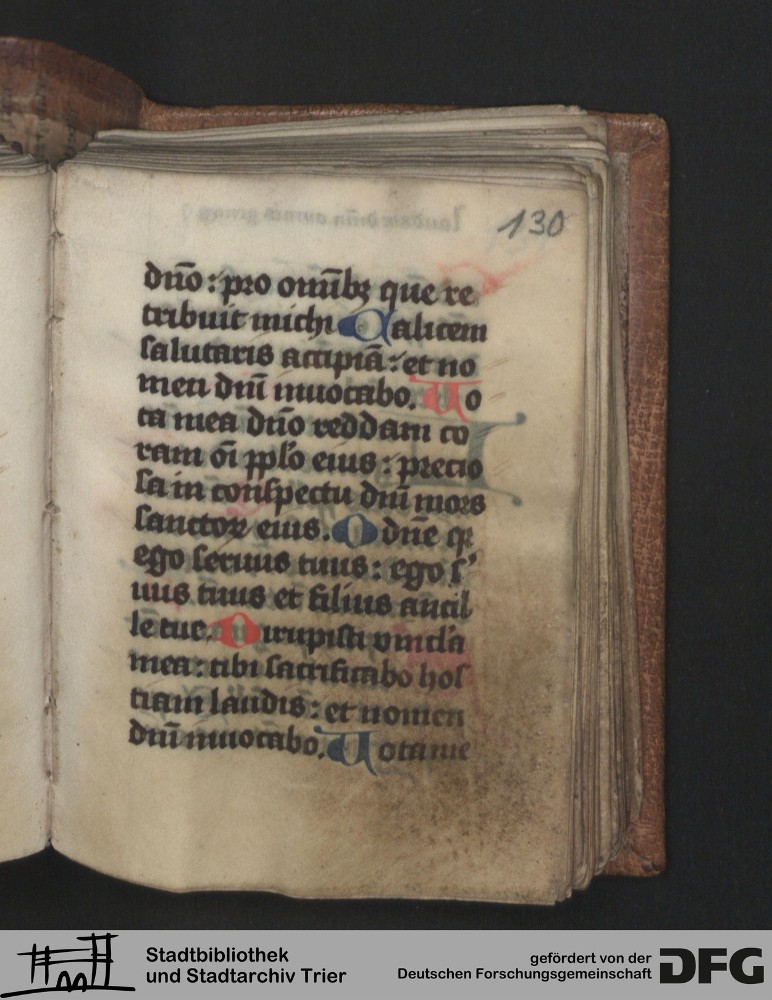 130
dño : pro omībꝫ que re
tribuit michi Calicem
salutaris accipiā : et no
men dñi inuocabo. Uo
ta mea dño reddam co
ram oı̄ pplo eius : precio
sa in conspectu dñi mors
sanctoꝝ eius. O dñe qꝛ
ego seruus tuus : ego s'
uus tuus et filius ancil
le tue. Dirupisti vincla
mea : tibi sacrificabo hos
tiam laudis : et nomen
dñi inuocabo. Uota me
Stadtbibliothek
und Stadtarchiv Trier
gefördert von der
Deutschen Forschungsgemeinschaft
DFG